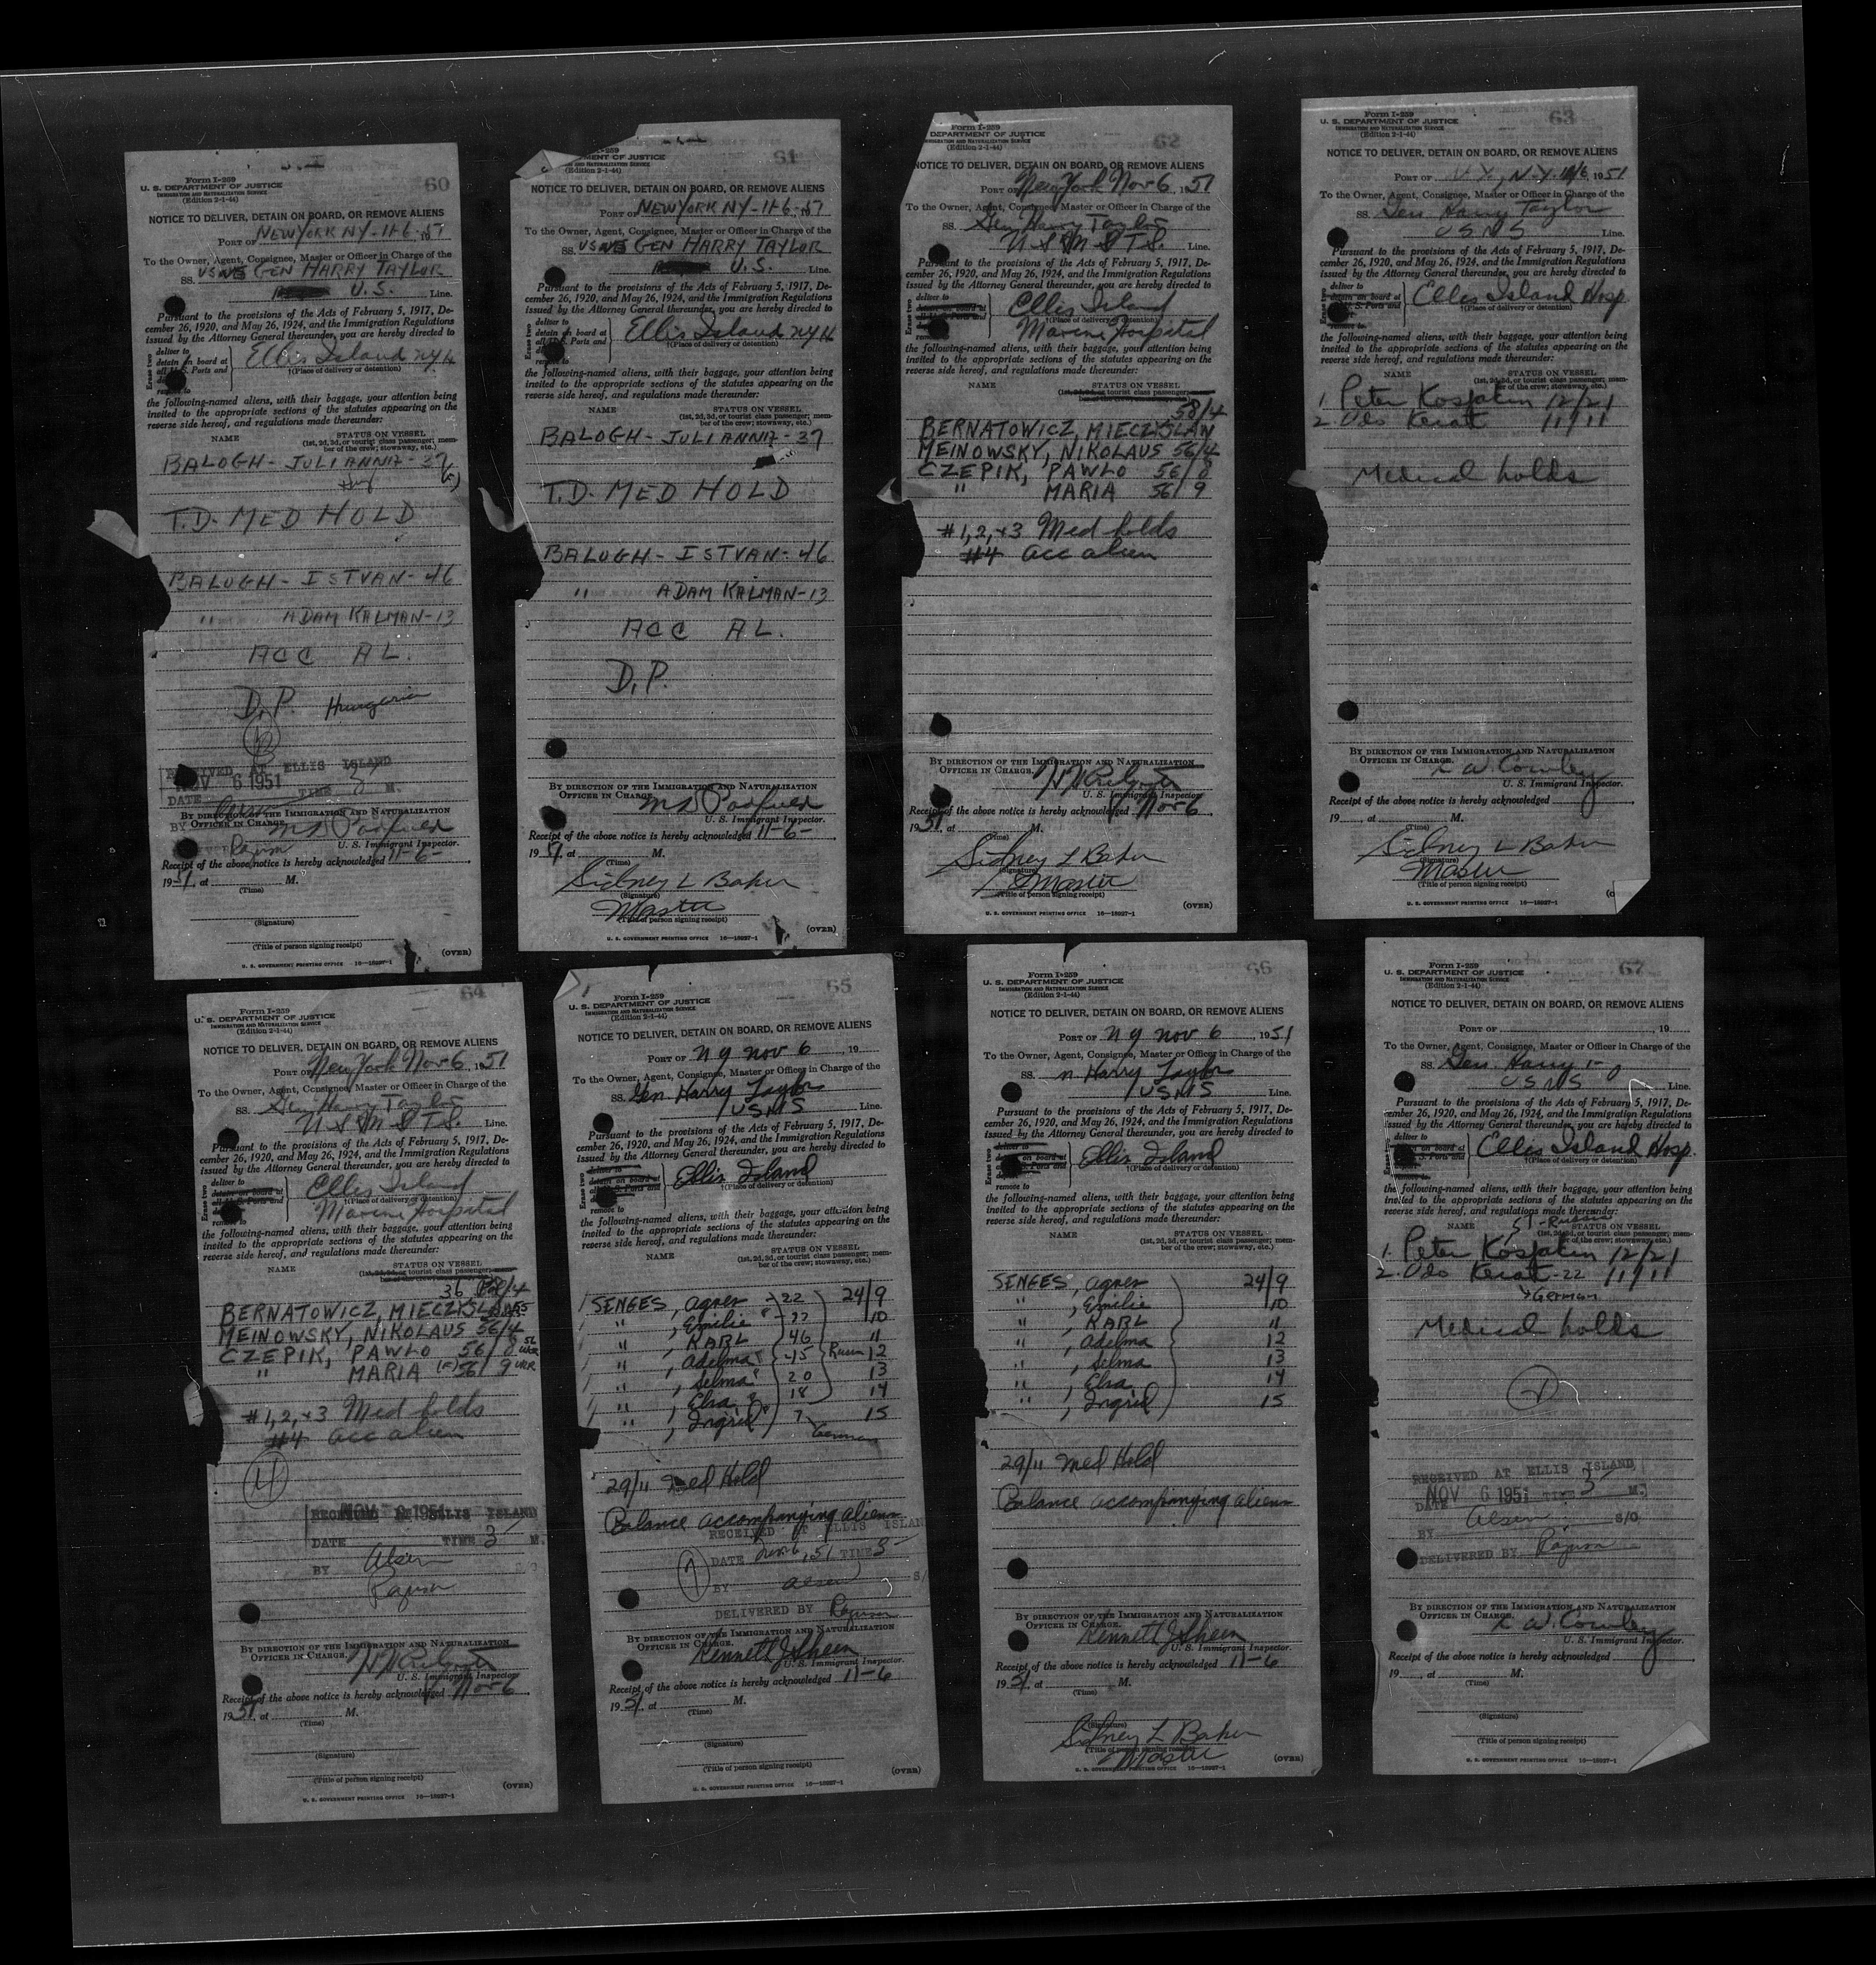 60
Form I-259
U. S. DEPARTMENT OF JUSTICE
IMMIGRATION AND NATURALIZATION SERVICE
(Edition 2-1-44)
NOTICE TO DELIVER, DETAIN ON BOARD, OR REMOVE ALIENS
PORT OF NEW YORK NY-11-6-, 1951
To the Owner, Agent, Consignee, Master or Officer in Charge of the
SS. USNS GEN HARRY TAYLOR
U.S. Line.
Pursuant to the provisions of the Acts of February 5, 1917, De-
cember 26, 1920, and May 26, 1924, and the Immigration Regulations
issued by the Attorney General thereunder, you are hereby directed to
Erase two
deliver to
detain on board at
all U. S. Ports and
remove to
Ellis Island NYH
†(Place of delivery or detention)
the following-named aliens, with their baggage, your attention being
invited to the appropriate sections of the statutes appearing on the
reverse side hereof, and regulations made thereunder:
NAME STATUS ON VESSEL
(1st, 2d, 3d, or tourist class passenger; mem-
ber of the crew; stowaway, etc.)
BALOGH- JULIANNA- 37
Hung (F)
T.D. MED HOLD
BALOGH- ISTVAN- 46
" ADAM KALMAN-13
ACC AL.
D.P. Hungaria
RECEIVED AT ELLIS ISLAND
NOV 6 1951
DATE TIME 3 M.
BY DIRECTION OF THE IMMIGRATION AND NATURALIZATION
BY OFFICER IN CHARGE.
U. S. Immigrant Inspector.
Receipt of the above notice is hereby acknowledged 11-6-
1951, at M.
(Time)
(Signature)
(Title of person signing receipt)
(OVER)
U. S. GOVERNMENT PRINTING OFFICE 16-18037-1
61
I-259
MENT OF JUSTICE
AND NATURALIZATION SERVICE
(Edition 2-1-44)
NOTICE TO DELIVER, DETAIN ON BOARD, OR REMOVE ALIENS
PORT OF NEW YORK NY-11-6-, 1951
To the Owner, Agent, Consignee, Master or Officer in Charge of the
SS. USNS GEN HARRY TAYLOR
U.S. Line.
Pursuant to the provisions of the Acts of February 5, 1917, De-
cember 26, 1920, and May 26, 1924, and the Immigration Regulations
issued by the Attorney General thereunder, you are hereby directed to
Erase two
deliver to
detain on board at
all U. S. Ports and
remove to
Ellis Island NYH
†(Place of delivery or detention)
the following-named aliens, with their baggage, your attention being
invited to the appropriate sections of the statutes appearing on the
reverse side hereof, and regulations made thereunder:
NAME STATUS ON VESSEL
(1st, 2d, 3d, or tourist class passenger; mem-
ber of the crew; stowaway, etc.)
BALOGH- JULIANNA- 37
T.D. MED HOLD
BALOGH- ISTVAN- 46
" ADAM KALMAN-13
ACC AL.
D.P.
BY DIRECTION OF THE IMMIGRATION AND NATURALIZATION
OFFICER IN CHARGE.
U. S. Immigrant Inspector.
Receipt of the above notice is hereby acknowledged 11-6-
1951, at M.
(Time)
Sidney L Baker
(Signature)
Master
(Title of person signing receipt)
(OVER)
U. S. GOVERNMENT PRINTING OFFICE 16-18037-1
62
Form I-259
DEPARTMENT OF JUSTICE
IMMIGRATION AND NATURALIZATION SERVICE
(Edition 2-1-44)
NOTICE TO DELIVER, DETAIN ON BOARD, OR REMOVE ALIENS
PORT OF New York Nov 6, 1951
To the Owner, Agent, Consignee, Master or Officer in Charge of the
SS. Gen Harry Taylor
Line.
Pursuant to the provisions of the Acts of February 5, 1917, De-
cember 26, 1920, and May 26, 1924, and the Immigration Regulations
issued by the Attorney General thereunder, you are hereby directed to
deliver to
Ellis Island
†(Place of delivery or detention)
Marine Hospital
the following-named aliens, with their baggage, your attention being
invited to the appropriate sections of the statutes appearing on the
reverse side hereof, and regulations made thereunder:
NAME STATUS ON VESSEL
(1st, 2d, 3d, or tourist class passenger;
58/4
BERNATOWICZ, MIECZYSLAN
MEINOWSKY, NIKOLAUS 56/4
CZEPIK, PAWLO 56/8
" MARIA 56/9
#1,2,+3 Med holds
#4 acc alien
BY DIRECTION OF THE IMMIGRATION AND NATURALIZATION
OFFICER IN CHARGE.
U. S. Immigrant Inspector
Receipt of the above notice is hereby acknowledged Nov 6
1951, at M.
(Time)
Sidney L Baker
(Signature)
Master
(Title of person signing receipt)
(OVER)
U. S. GOVERNMENT PRINTING OFFICE 16-18037-1
63
Form I-259
U. S. DEPARTMENT OF JUSTICE
IMMIGRATION AND NATURALIZATION SERVICE
(Edition 2-1-44)
NOTICE TO DELIVER, DETAIN ON BOARD, OR REMOVE ALIENS
PORT OF N.Y., N.Y. 11/6 1951
To the Owner, Agent, Consignee, Master or Officer in Charge of the
SS. Gen. Harry Taylor
USNS Line.
Pursuant to the provisions of the Acts of February 5, 1917, De-
cember 26, 1920, and May 26, 1924, and the Immigration Regulations
issued by the Attorney General thereunder, you are hereby directed to
deliver to
Ellis Island Hosp.
†(Place of delivery or detention)
the following-named aliens, with their baggage, your attention being
invited to the appropriate sections of the statutes appearing on the
reverse side hereof, and regulations made thereunder:
NAME STATUS ON VESSEL
(1st, 2d, 3d, or tourist class passenger; mem-
ber of the crew; stowaway, etc.)
1. Peter 12/21
2. Udo 11/11
Medical holds
BY DIRECTION OF THE IMMIGRATION AND NATURALIZATION
OFFICER IN CHARGE.
U. S. Immigrant Inspector.
Receipt of the above notice is hereby acknowledged
19, at M.
(Time)
Sidney L Baker
(Signature)
Master
(Title of person signing receipt)
U. S. GOVERNMENT PRINTING OFFICE 16-18037-1
64
Form I-259
U. S. DEPARTMENT OF JUSTICE
IMMIGRATION AND NATURALIZATION SERVICE
(Edition 2-1-44)
NOTICE TO DELIVER, DETAIN ON BOARD, OR REMOVE ALIENS
PORT OF New York Nov 6, 1951
To the Owner, Agent, Consignee, Master or Officer in Charge of the
SS. Gen Harry Taylor
Line.
Pursuant to the provisions of the Acts of February 5, 1917, De-
cember 26, 1920, and May 26, 1924, and the Immigration Regulations
issued by the Attorney General thereunder, you are hereby directed to
deliver to
Ellis Island
†(Place of delivery or detention)
Marine Hospital
the following-named aliens, with their baggage, your attention being
invited to the appropriate sections of the statutes appearing on the
reverse side hereof, and regulations made thereunder:
NAME STATUS ON VESSEL
(1st, 2d, 3d, or tourist class passenger;
BERNATOWICZ, MIECZYSLAN
MEINOWSKY, NIKOLAUS 56/4
CZEPIK, PAWLO 56/8 UKR
" MARIA (F) 56/9 UKR
#1,2,+3 Med holds
#4 acc alien
4
RECEIVED AT ELLIS ISLAND
DATE TIME 3 M.
BY
BY DIRECTION OF THE IMMIGRATION AND NATURALIZATION
OFFICER IN CHARGE.
U. S. Immigrant Inspector
Receipt of the above notice is hereby acknowledged Nov 6
1951, at M.
(Time)
(Signature)
(Title of person signing receipt)
(OVER)
U. S. GOVERNMENT PRINTING OFFICE 16-18037-1
65
Form I-259
U. S. DEPARTMENT OF JUSTICE
IMMIGRATION AND NATURALIZATION SERVICE
(Edition 2-1-44)
NOTICE TO DELIVER, DETAIN ON BOARD, OR REMOVE ALIENS
PORT OF N Y Nov 6, 19
To the Owner, Agent, Consignee, Master or Officer in Charge of the
SS. Gen. Harry Taylor
USNS Line.
Pursuant to the provisions of the Acts of February 5, 1917, De-
cember 26, 1920, and May 26, 1924, and the Immigration Regulations
issued by the Attorney General thereunder, you are hereby directed to
Erase two
deliver to
detain on board at
all U. S. Ports and
remove to
Ellis Island
†(Place of delivery or detention)
the following-named aliens, with their baggage, your attention being
invited to the appropriate sections of the statutes appearing on the
reverse side hereof, and regulations made thereunder:
NAME STATUS ON VESSEL
(1st, 2d, 3d, or tourist class passenger; mem-
ber of the crew; stowaway, etc.)
SENGES, Agnes 22 24/9
", Emilie 10
", KARL 46 11
", Adelma 45 12
", Selma 20 13
", Elsa 18 14
", Ingrid 7 15
German
29/11 Med Hold
Balance accompanying aliens
RECEIVED AT ELLIS ISLAND
DATE Nov 6, 51 TIME 3
7
BY
DELIVERED BY
BY DIRECTION OF THE IMMIGRATION AND NATURALIZATION
OFFICER IN CHARGE.
Kenneth J Sheen
U. S. Immigrant Inspector.
Receipt of the above notice is hereby acknowledged 11-6
1951, at M.
(Time)
(Signature)
(Title of person signing receipt)
(OVER)
U. S. GOVERNMENT PRINTING OFFICE 16-18037-1
66
Form I-259
U. S. DEPARTMENT OF JUSTICE
IMMIGRATION AND NATURALIZATION SERVICE
(Edition 2-1-44)
NOTICE TO DELIVER, DETAIN ON BOARD, OR REMOVE ALIENS
PORT OF N Y Nov 6, 1951
To the Owner, Agent, Consignee, Master or Officer in Charge of the
SS. n. Harry Taylor
USNS Line.
Pursuant to the provisions of the Acts of February 5, 1917, De-
cember 26, 1920, and May 26, 1924, and the Immigration Regulations
issued by the Attorney General thereunder, you are hereby directed to
Ellis Island
†(Place of delivery or detention)
remove to
the following-named aliens, with their baggage, your attention being
invited to the appropriate sections of the statutes appearing on the
reverse side hereof, and regulations made thereunder:
NAME STATUS ON VESSEL
(1st, 2d, 3d, or tourist class passenger; mem-
ber of the crew; stowaway, etc.)
SENGES, Agnes 24/9
", Emilie 10
", KARL 11
", Adelma 12
", Selma 13
", Elsa 14
", Ingrid 15
29/11 Med Hold
Balance accompanying aliens
BY DIRECTION OF THE IMMIGRATION AND NATURALIZATION
OFFICER IN CHARGE.
Kenneth J Sheen
U. S. Immigrant Inspector.
Receipt of the above notice is hereby acknowledged 11-6
1951, at M.
(Time)
(Signature)
Sidney L Baker
(Title of person signing receipt)
Master
(OVER)
U. S. GOVERNMENT PRINTING OFFICE 16-18037-1
67
Form I-259
U. S. DEPARTMENT OF JUSTICE
IMMIGRATION AND NATURALIZATION SERVICE
(Edition 2-1-44)
NOTICE TO DELIVER, DETAIN ON BOARD, OR REMOVE ALIENS
PORT OF , 19
To the Owner, Agent, Consignee, Master or Officer in Charge of the
SS. Gen. Harry
USNS Line.
Pursuant to the provisions of the Acts of February 5, 1917, De-
cember 26, 1920, and May 26, 1924, and the Immigration Regulations
issued by the Attorney General thereunder, you are hereby directed to
deliver to
Ellis Island Hosp.
†(Place of delivery or detention)
the following-named aliens, with their baggage, your attention being
invited to the appropriate sections of the statutes appearing on the
reverse side hereof, and regulations made thereunder:
NAME STATUS ON VESSEL
(1st, 2d, 3d, or tourist class passenger; mem-
ber of the crew; stowaway, etc.)
1. Peter 12/21
2. Udo 22 11/11
German
Medical holds
RECEIVED AT ELLIS ISLAND
NOV 6 1951
DATE TIME 3 M.
BY S/O
DELIVERED BY
BY DIRECTION OF THE IMMIGRATION AND NATURALIZATION
OFFICER IN CHARGE.
U. S. Immigrant Inspector.
Receipt of the above notice is hereby acknowledged
19, at M.
(Time)
(Signature)
(Title of person signing receipt)
U. S. GOVERNMENT PRINTING OFFICE 16-18037-1